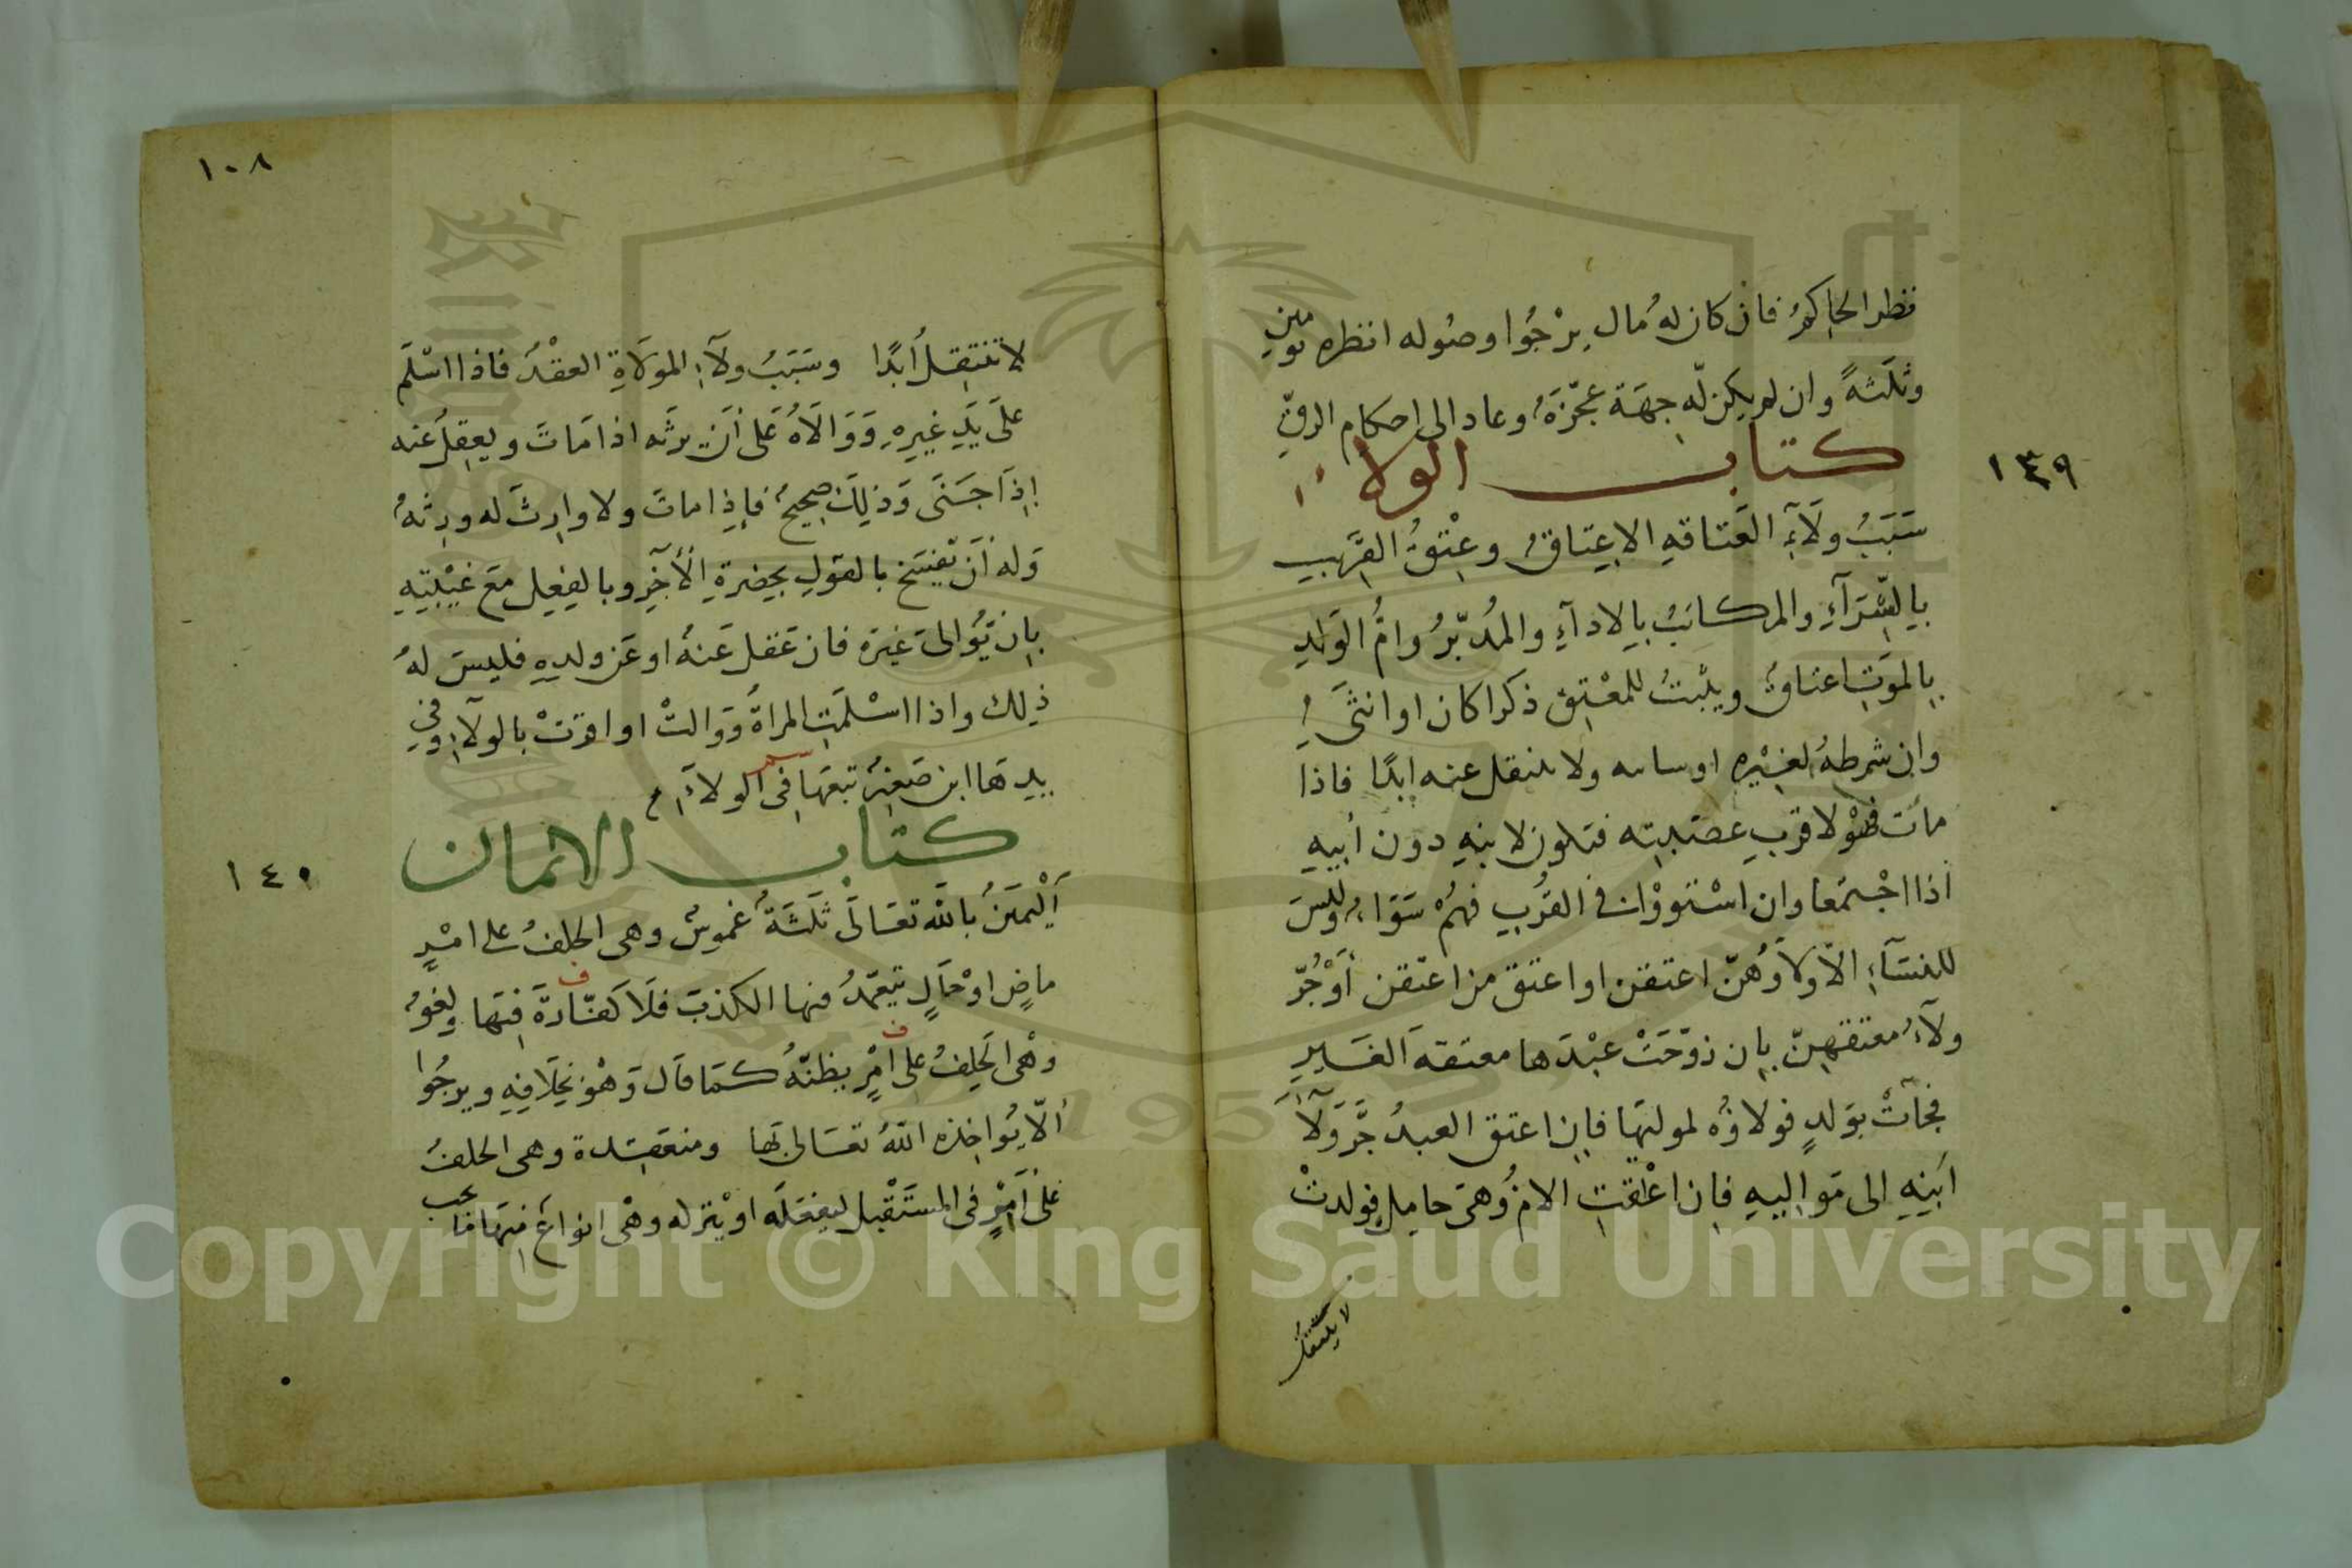 نظر الحاكم فان كان له مال يرجوا وصوله انظره يومين
وثلثة وان لم يكن له جهة عجزه وعاد الى احكام الرق
كتاب الولاء
١٣٩
سبب ولاء العتاقه الاعتاق وعتق القريب
بالشراء والمكاتب بالاداء والمدبر وام الولد
بالموت اعتاق ويثبت للمعتق ذكرا كان او انثى
وان شرطه لغيره او سابه ولا ينتقل عنه ابدا فاذا
مات فهو لاقرب عصبته فتكون لابنه دون ابيه
اذا اجتمعا وان استووا في القرب فهم سواء وليس
للنساء الا ولاؤهن اعتقن او اعتق من اعتقن او جر
ولاء معتقهن بان زوجت عبدها معتقه الغير
فجات بولد فولاؤه لمولتها فان اعتق العبد جر ولا
ابنه الى مواليه فان اعتقت الام وهى حامل فولدت
لا ينتقل
١٠٨
لا تنتقل ابدا وسبب ولاء المولاة العقد فاذا اسلم
على يد غيره ووالاه على ان يرثه اذا مات ويعقل عنه
اذا جنى وذلك صحيح فاذا مات ولا وارث له ورثه
وله ان يفسخ بالقول بحضرة الآخر وبالفعل مع غيبته
بان يوالى غيره فان عقل عنه او عن ولده فليس له
ذلك واذا اسلمت المراة ووالت او اقرت بالولاء وفي
يدها ابن صغير تبعها فى الولاء
كتاب الايمان
١٤٠
اليمين بالله تعالى ثلثة غموس وهى الحلف على امر
ماض او حال يتعمد منها الكذب فلا كفارة فيها ولغو
وهى الحلف على امر يظنه كما قال وهو بخلافه ويرجوا
الا يؤاخذه الله تعالى بها ومنعقدة وهى الحلف
على امر فى المستقبل ليفعله او يتركه وهى انواع منها ما يجب
Copyright © King Saud University
1957